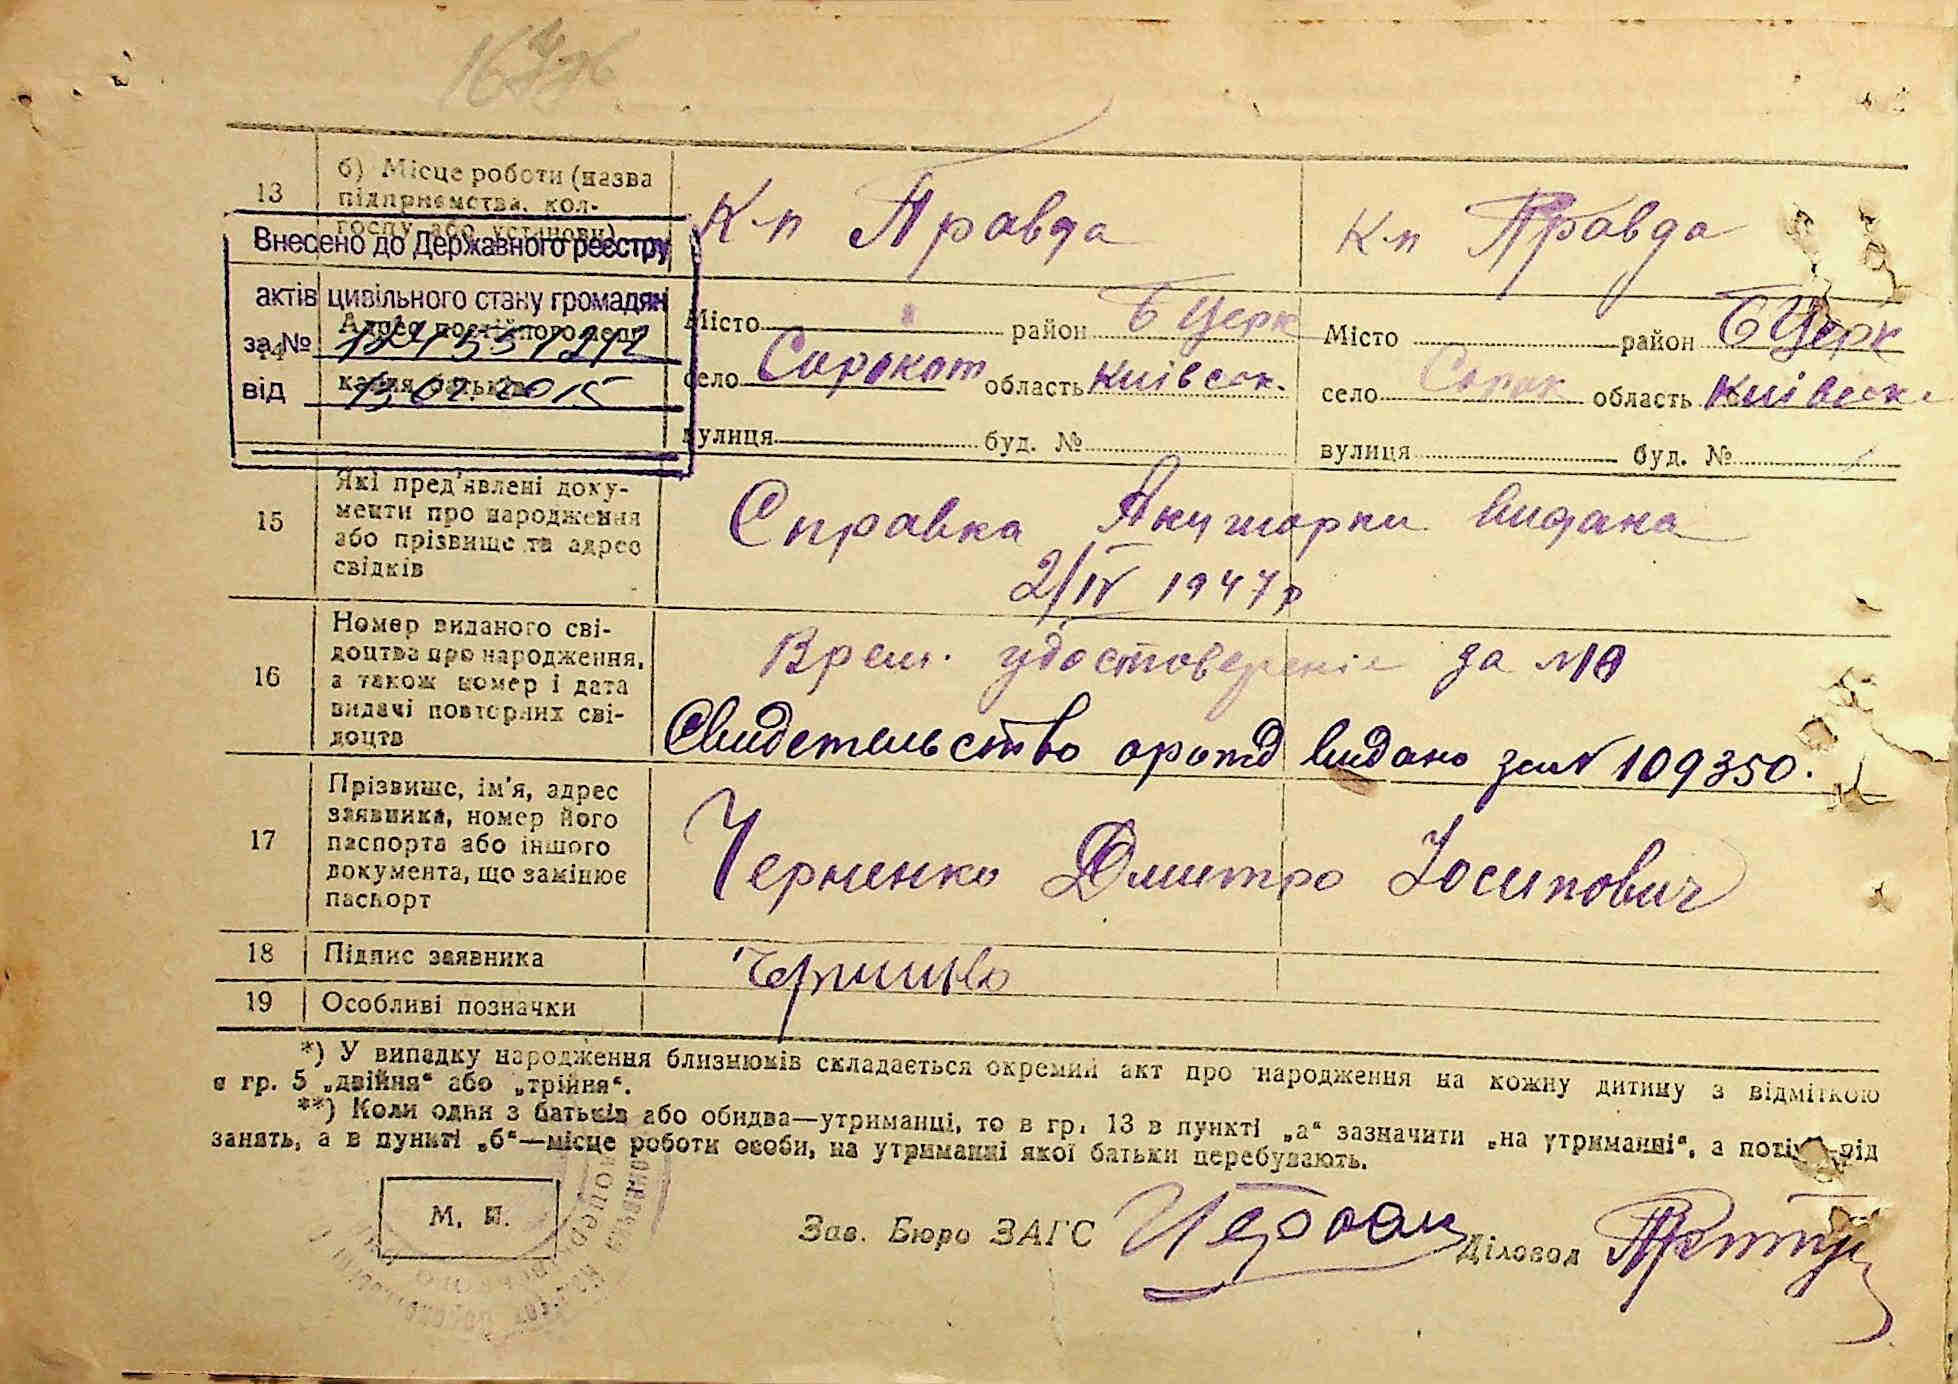 13
б) Місце роботи (назва
підприємства, кол-
госпу або установи)
К-п Правда
К-п Правда
Внесено до Державного реєстру
актів цивільного стану громадян
за №
від 13.02.2015
14
Адреса постійного
батьків
Місто район Б Церк
село область Київськ.
вулиця буд. №
Місто район Б Церк
село Сорок область Київськ.
вулиця буд. №
15
Які пред'явлені доку-
менти про народження
або прізвище та адрес
свідків
Справка Акушорки видана
2/IV 1947 р
16
Номер виданого сві-
доцтва про народження,
а також номер і дата
видачі повторних сві-
доцтв
Врем. удостовереніе за №
Свидетельство орожд видано за № 109350.
17
Прізвище, ім'я, адрес
заявника, номер його
паспорта або іншого
документа, що замінює
паспорт
Черненко Дмитро Йосипович
18
Підпис заявника
19
Особливі позначки
*) У випадку народження близнюків складається окремий акт про народження на кожну дитину з відміткою
в гр. 5 „двійня“ або „трійня“.
**) Коли один з батьків або обидва—утриманці, то в гр. 13 в пункті „а“ зазначити „на утриманні“, а потім рід
занять, а в пункті „б“—місце роботи особи, на утриманні якої батьки перебувають.
М. П.
Зав. Бюро ЗАГС
Діловод